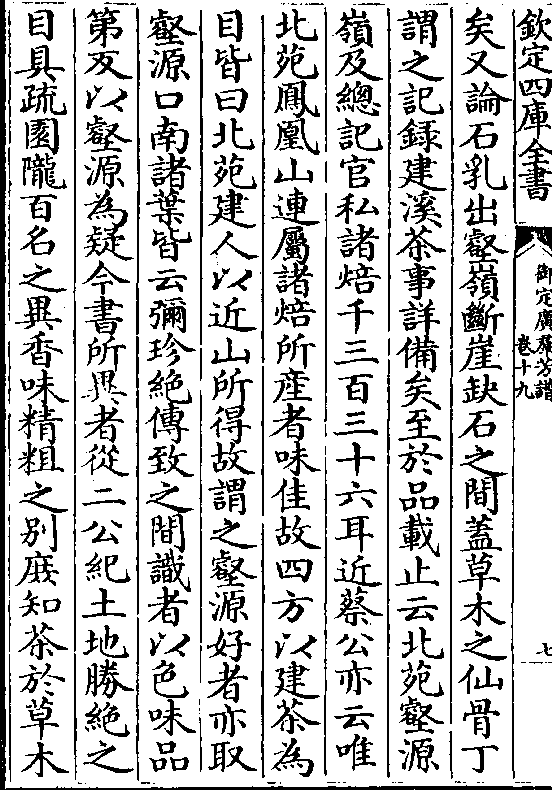 欽定四庫全書
御定廣羣芳譜
卷十九
七
矣又論石乳出壑嶺斷崖缺石之間蓋草木之仙骨丁
謂之記録建溪茶事詳備矣至於品載止云北苑壑源
嶺及總記官私諸焙千三百三十六耳近蔡公亦云唯
北苑鳳凰山連屬諸焙所産者味佳故四方以建茶為
目皆曰北苑建人以近山所得故謂之壑源好者亦取
壑源口南諸葉皆云彌珍絶傳致之間識者以色味品
第反以壑源為疑今書所異者從二公紀土地勝絶之
目具疏園隴百名之異香味精粗之别庻知茶於草木